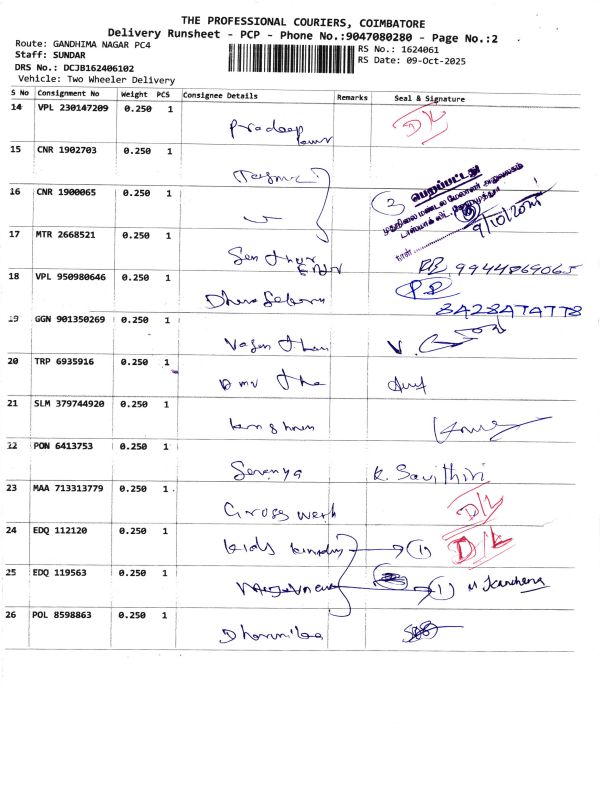 THE PROFESSIONAL COURIERS, COIMBATORE
Delivery Runsheet - PCP - Phone No.:9047080280 - Page No.:2
Route: GANDHIMA NAGAR PC4
Staff: SUNDAR
DRS No.: DCJB162406102
Vehicle: Two Wheeler Delivery
RS No.: 1624061
RS Date: 09-Oct-2025
S No Consignment No Weight PCS Consignee Details Remarks Seal & Signature
14 VPL 230147209 0.250 1 Pradeep D/L
15 CNR 1902703 0.250 1
16 CNR 1900065 0.250 1 2 பெறப்பட்டது
9/10/2025
17 MTR 2668521 0.250 1 Senthur 9944869065
18 VPL 950980646 0.250 1 P.P
19 GGN 901350269 0.250 1 Vasanthan
20 TRP 6935916 0.250 1
21 SLM 379744920 0.250 1
22 PON 6413753 0.250 1 Saranya K. Savithiri
23 MAA 713313779 0.250 1 Cross D/L
24 EDQ 112120 0.250 1 Kids (1) D/L
25 EDQ 119563 0.250 1 (1) M Kanchana
26 POL 8598863 0.250 1